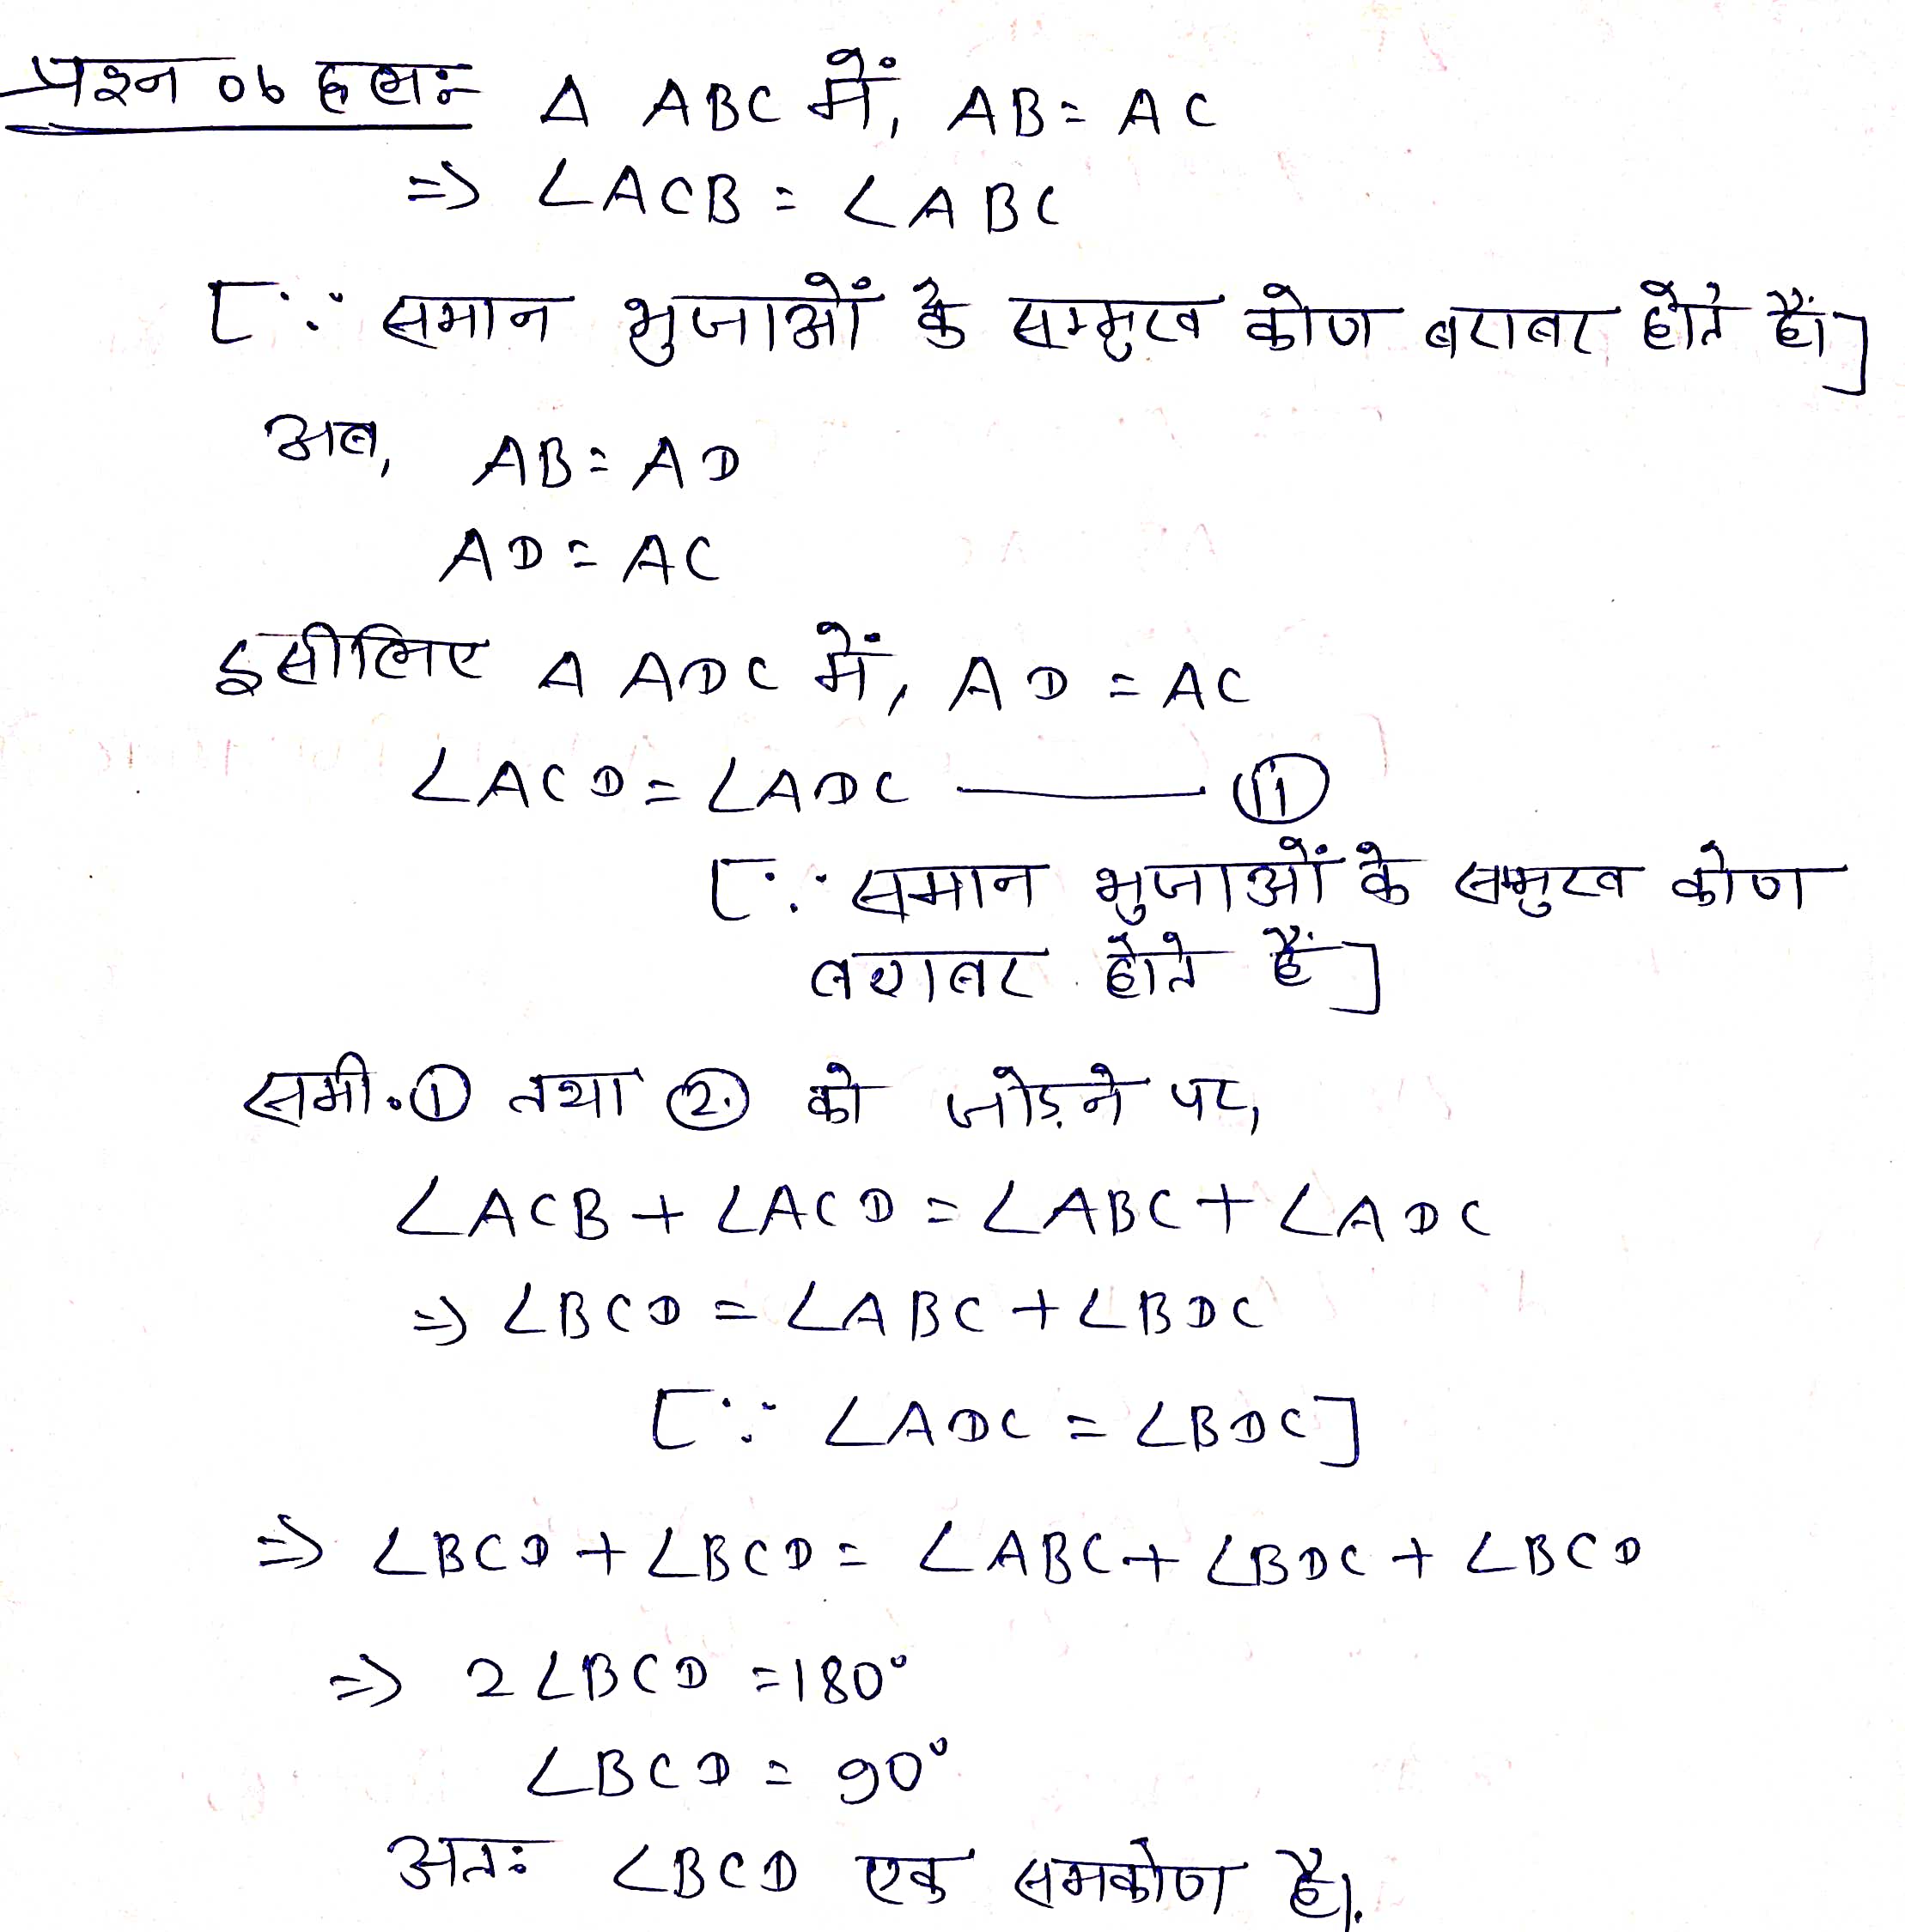 प्रश्न 06 हलः- Δ ABC में, AB = AC
=> ∠ACB = ∠ABC
[∵ समान भुजाओं के सम्मुख कोण बराबर होते हैं।]
अब, AB = AD
AD = AC
इसीलिए Δ ADC में, AD = AC
∠ACD = ∠ADC —— (11)
[∵ समान भुजाओं के सम्मुख कोण
बराबर होते हैं]
समी. ① तथा ② को जोड़ने पर,
∠ACB + ∠ACD = ∠ABC + ∠ADC
=> ∠BCD = ∠ABC + ∠BDC
[∵ ∠ADC = ∠BDC]
=> ∠BCD + ∠BCD = ∠ABC + ∠BDC + ∠BCD
=> 2∠BCD = 180°
∠BCD = 90°
अतः ∠BCD एक समकोण है।